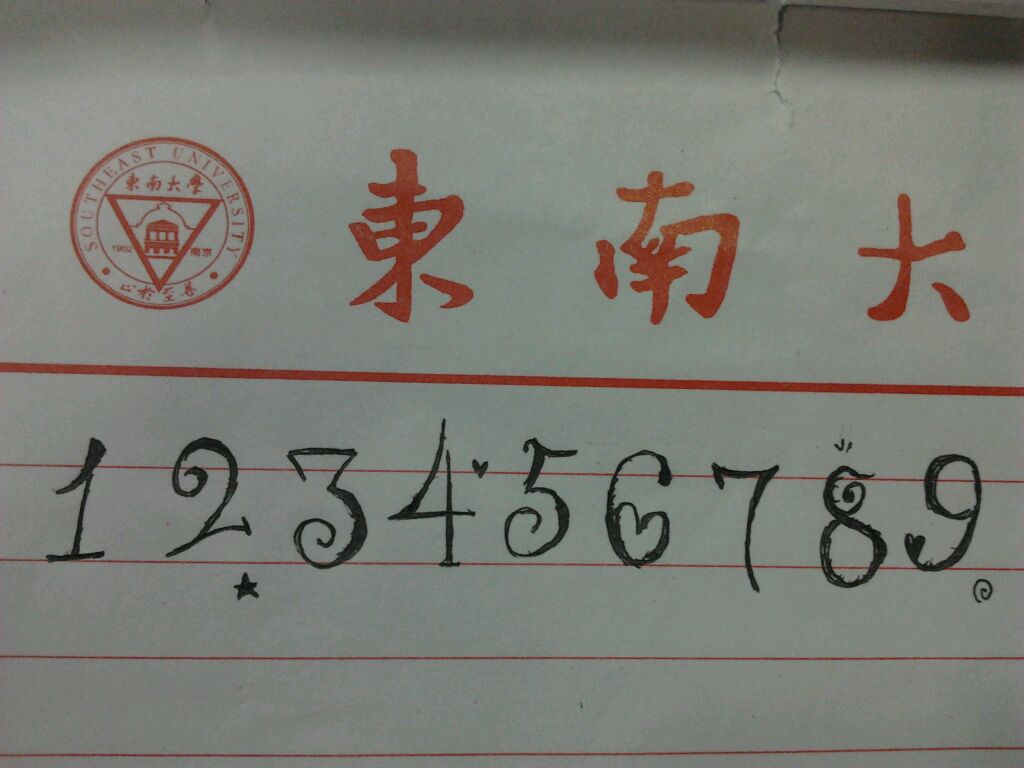 SOUTHEAST UNIVERSITY
東南大學
1902 南京
止於至善
東南大
123456789